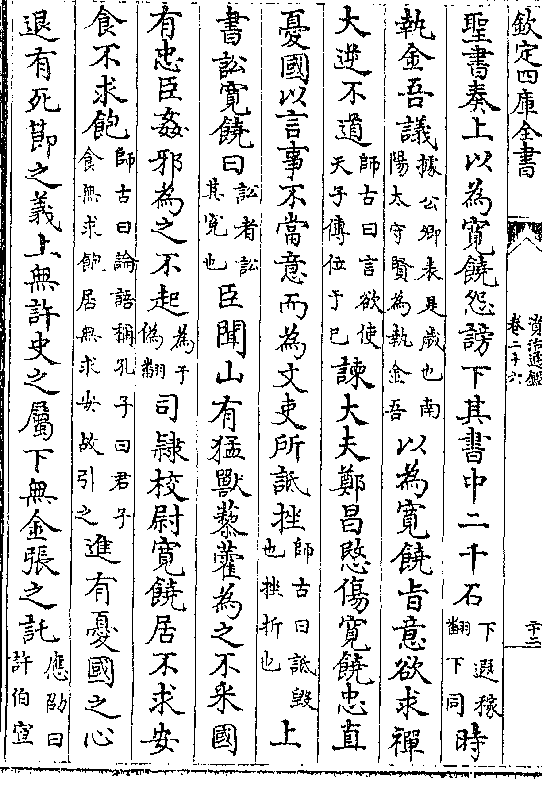 欽定四庫全書
資治通鑑
卷二十六
聖書奏上以為寛饒怨謗下其書中二千石下遐稼翻下同時
執金吾議據公卿表是歲也南陽太守賢為執金吾以為寛饒旨意欲求禪
大逆不道師古曰言欲使天子傳位于已諫大夫鄭昌愍傷寛饒忠直
憂國以言事不當意而為文吏所詆挫師古曰詆毁也挫折也上
書訟寛饒曰訟者訟其寃也臣聞山有猛獸藜藿為之不采國
有忠臣姦邪為之不起為于偽翻司隸校尉寛饒居不求安
食不求飽師古曰論語稱孔子曰君子食無求飽居無求安故引之進有憂國之心
退有死節之義上無許史之屬下無金張之託應劭曰許伯宣